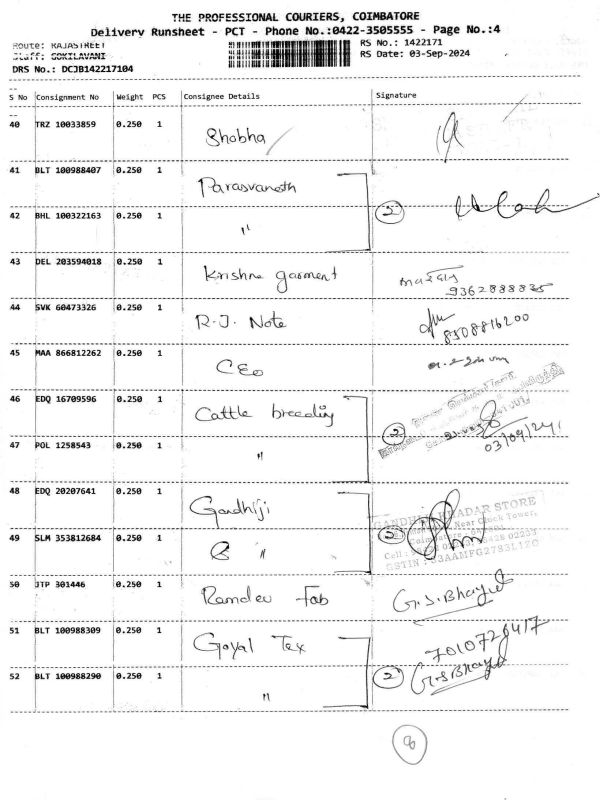 THE PROFESSIONAL COURIERS, COIMBATORE
Delivery Runsheet - PCT - Phone No.:0422-3505555 - Page No.:4
Route: RAJASTREET
RS No.: 1422171
Staff: GOKILAVANI
RS Date: 03-Sep-2024
DRS No.: DCJB142217104
S No Consignment No Weight PCS Consignee Details Signature
40 TRZ 10033859 0.250 1 Shobha
41 BLT 100988407 0.250 1 Parasvanath
2
42 BHL 100322163 0.250 1 "
43 DEL 203594018 0.250 1 Krishna garment
9362888835
44 SVK 60473326 0.250 1 R.J. Note
8508816200
45 MAA 866812262 0.250 1 CEO
46 EDQ 16709596 0.250 1 Cattle breeding
2
03/09/24
47 POL 1258543 0.250 1 "
48 EDQ 20207641 0.250 1 Gandhiji
KHADAR STORE
Near Clock Tower,
2
49 SLM 353812684 0.250 1 "
Coimbatore
GSTIN : 33AAMFG2783L1ZO
50 JTP 301446 0.250 1 Ramdev Fab G.S.Bhayul
51 BLT 100988309 0.250 1 Goyal Tex 7010728417
2 G.S.Bhayul
52 BLT 100988290 0.250 1 "
8